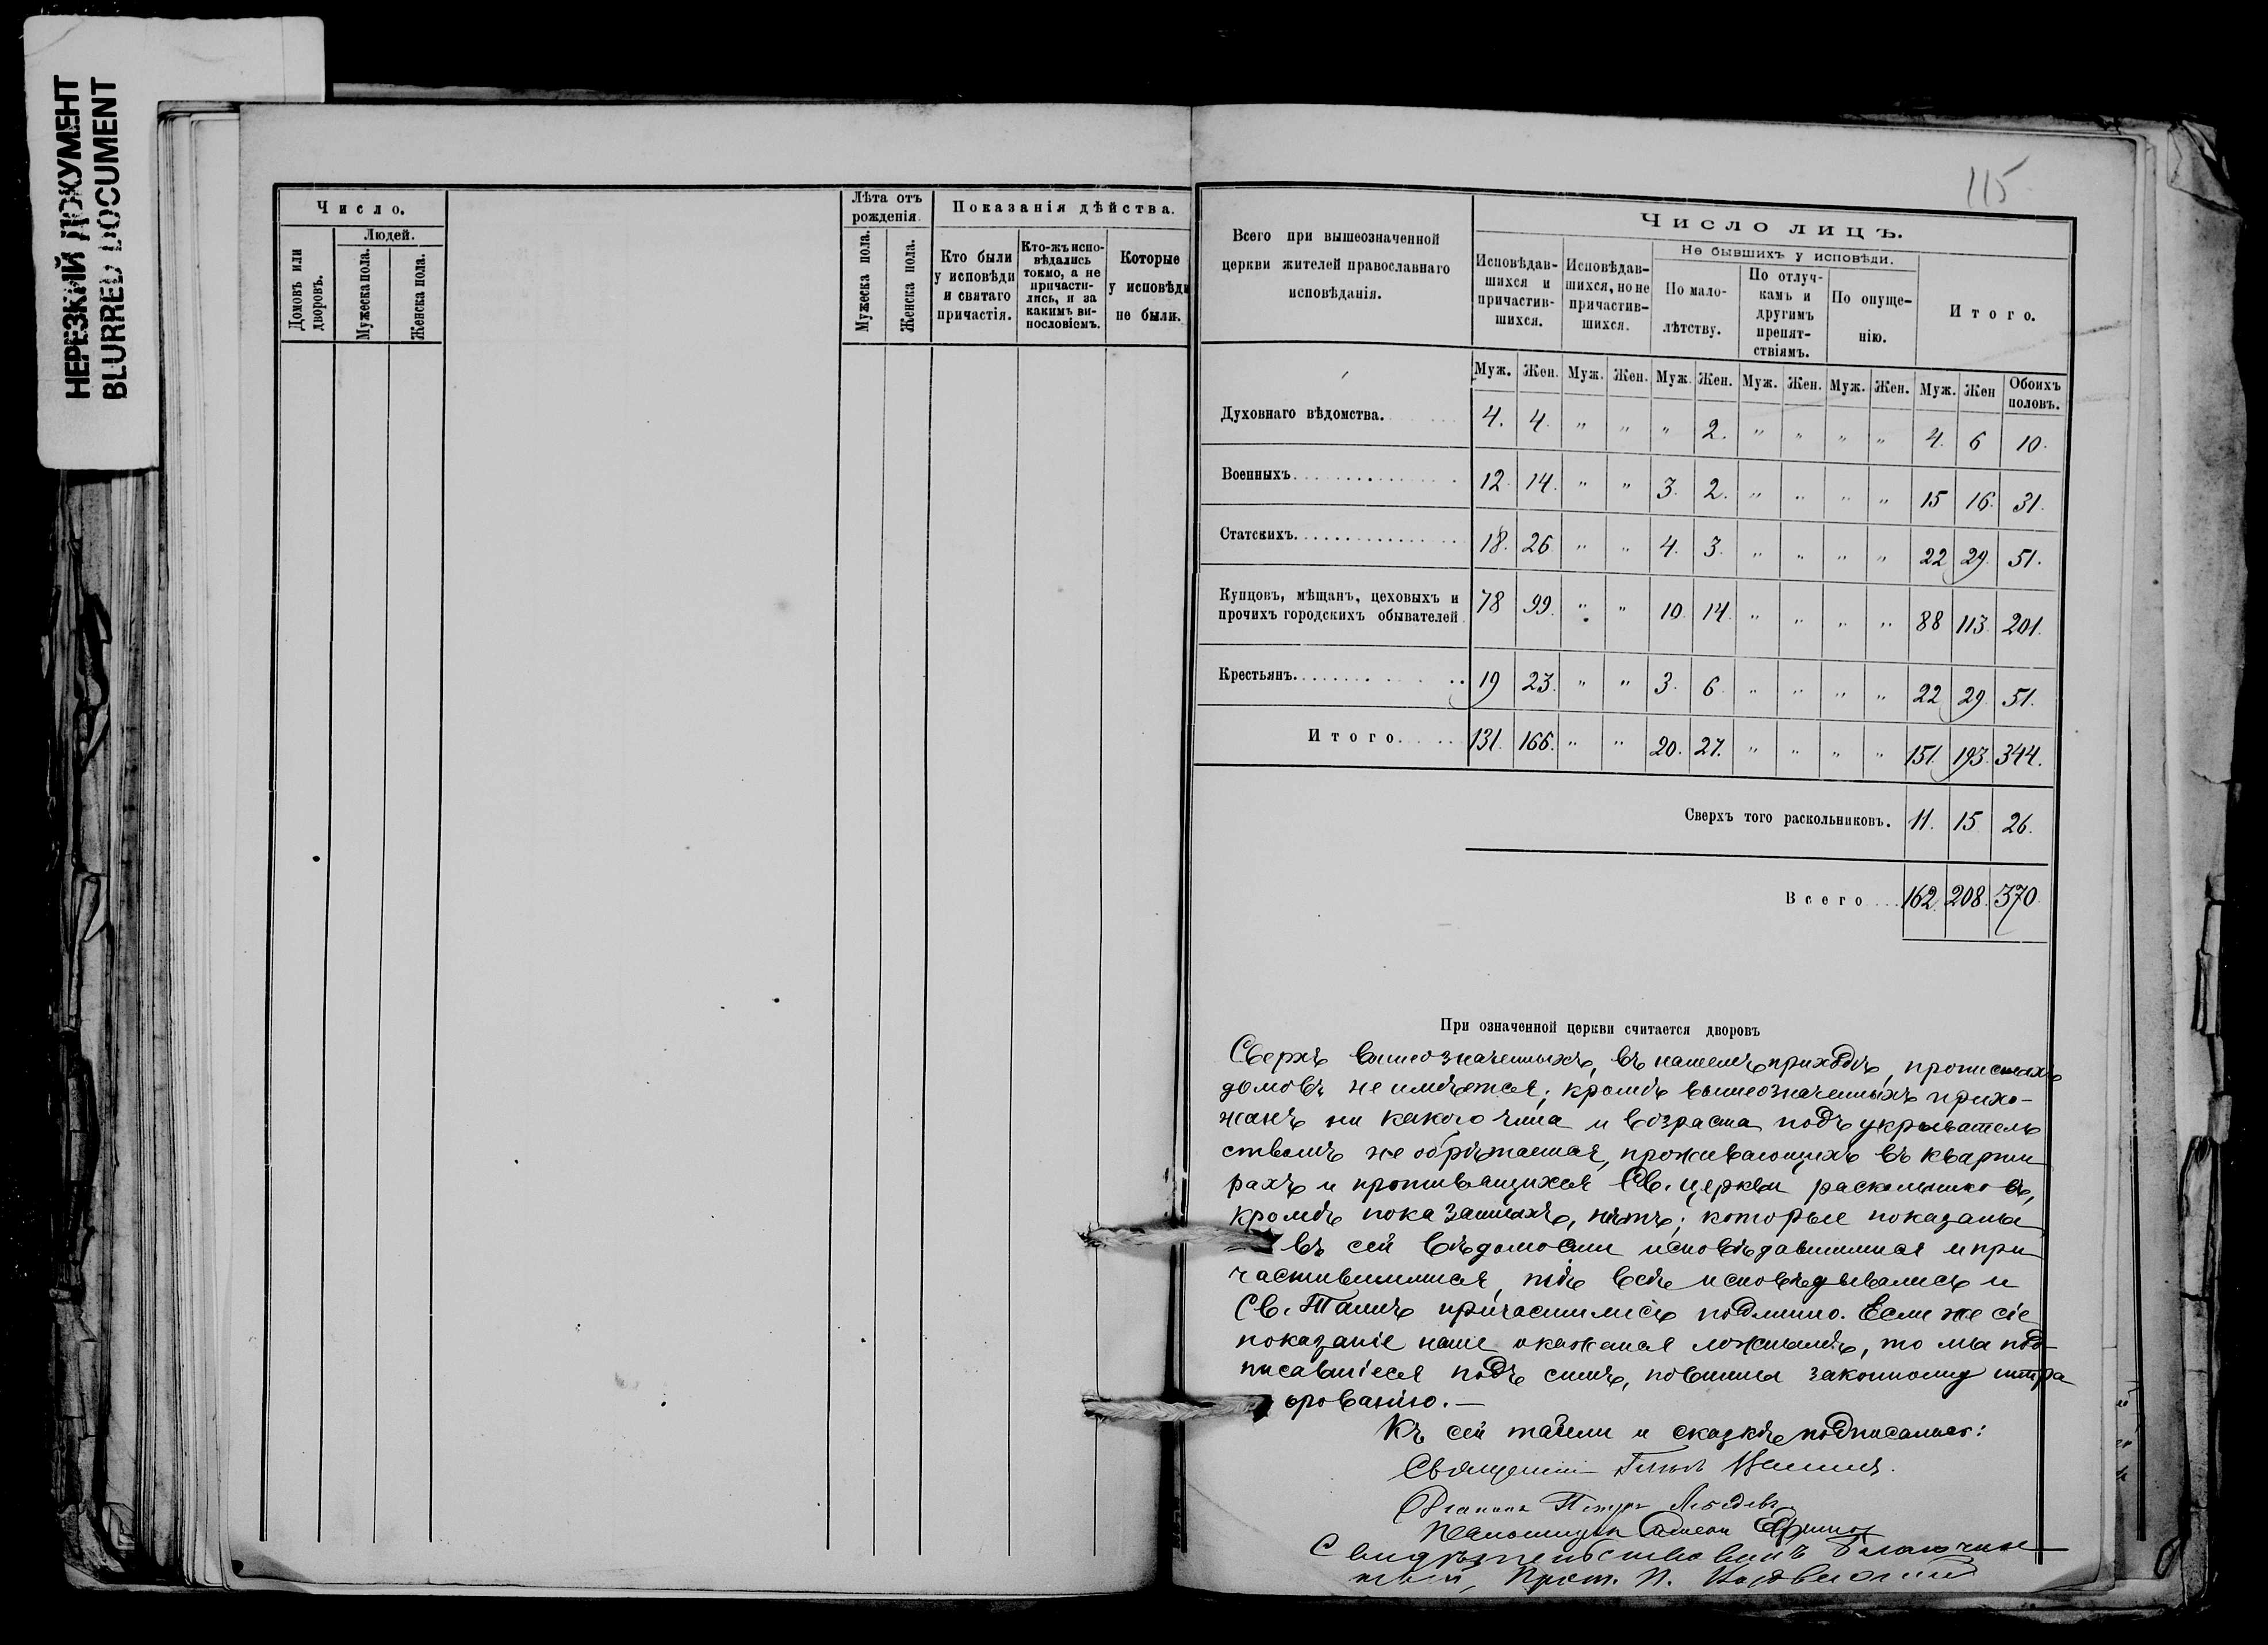 НЕРЕЗКИЙ ДОКУМЕНТ
BLURRED DOCUMENT
Число.
Людей.
Домовъ или дворовъ.
Мужеска пола.
Женска пола.
Лѣта отъ рожденія.
Мужеска пола.
Женска пола.
Показанія дѣйства.
Кто были у исповѣди и святаго причастія.
Кто-жъ исповѣдались токмо, а не причастились, и за какимъ винословіемъ.
Которые у исповѣди не были.
115
Всего при вышеозначенной
церкви жителей православнаго
исповѣданія.
Число лицъ.
Исповѣдавшихся и причастившихся.
Исповѣдавшихся, но не причастившихся.
Не бывшихъ у исповѣди.
По малолѣтству.
По отлучкамъ и другимъ препятствіямъ.
По опущенію.
Итого.
Муж. Жен. Муж. Жен. Муж. Жен. Муж. Жен. Муж. Жен. Муж. Жен Обоихъ половъ.
Духовнаго вѣдомства. 4. 4. " " " 2. " " " " 4. 6 10.
Военныхъ 12. 14. " " 3. 2. " " " " 15 16. 31.
Статскихъ 18. 26. " " 4. 3. " " " " 22 29. 51.
Купцовъ, мѣщанъ, цеховыхъ и
прочихъ городскихъ обывателей 78 99. " " 10. 14. " " " " 88 113. 201.
Крестьянъ 19 23. " " 3. 6. " " " " 22 29. 51.
Итого 131. 166. " " 20. 27. " " " " 151. 193. 344.
Сверхъ того раскольниковъ. 11. 15 26.
Всего 162. 208. 370.
При означенной церкви считается дворовъ
Сверхъ вышеозначенныхъ, въ нашемъ приходѣ,
домовъ не имѣется; кромѣ вышеозначенныхъ прихо-
жанъ ни какого чина и возраста подъ укрыватель
ствомъ не обрѣтается, проживающихъ въ кварти
рахъ и противящихся Св. Церкви раскольниковъ,
кромѣ показанныхъ, нѣтъ; которые показаны
въ сей вѣдомости исповѣдавшимися и при
частившимися, тѣ всѣ исповѣдывались и
Св. Таинъ причастились подлинно. Если же сіе
показаніе наше окажется ложнымъ, то мы под-
писавшіеся подъ симъ, повинны законному штра
фованію.—
Къ сей табели и сказкѣ подписались:
Священникъ
Діаконъ Петръ Лебедевъ
Псаломщикъ
Свидѣтельствовалъ Благочин
ный, Прот. П.